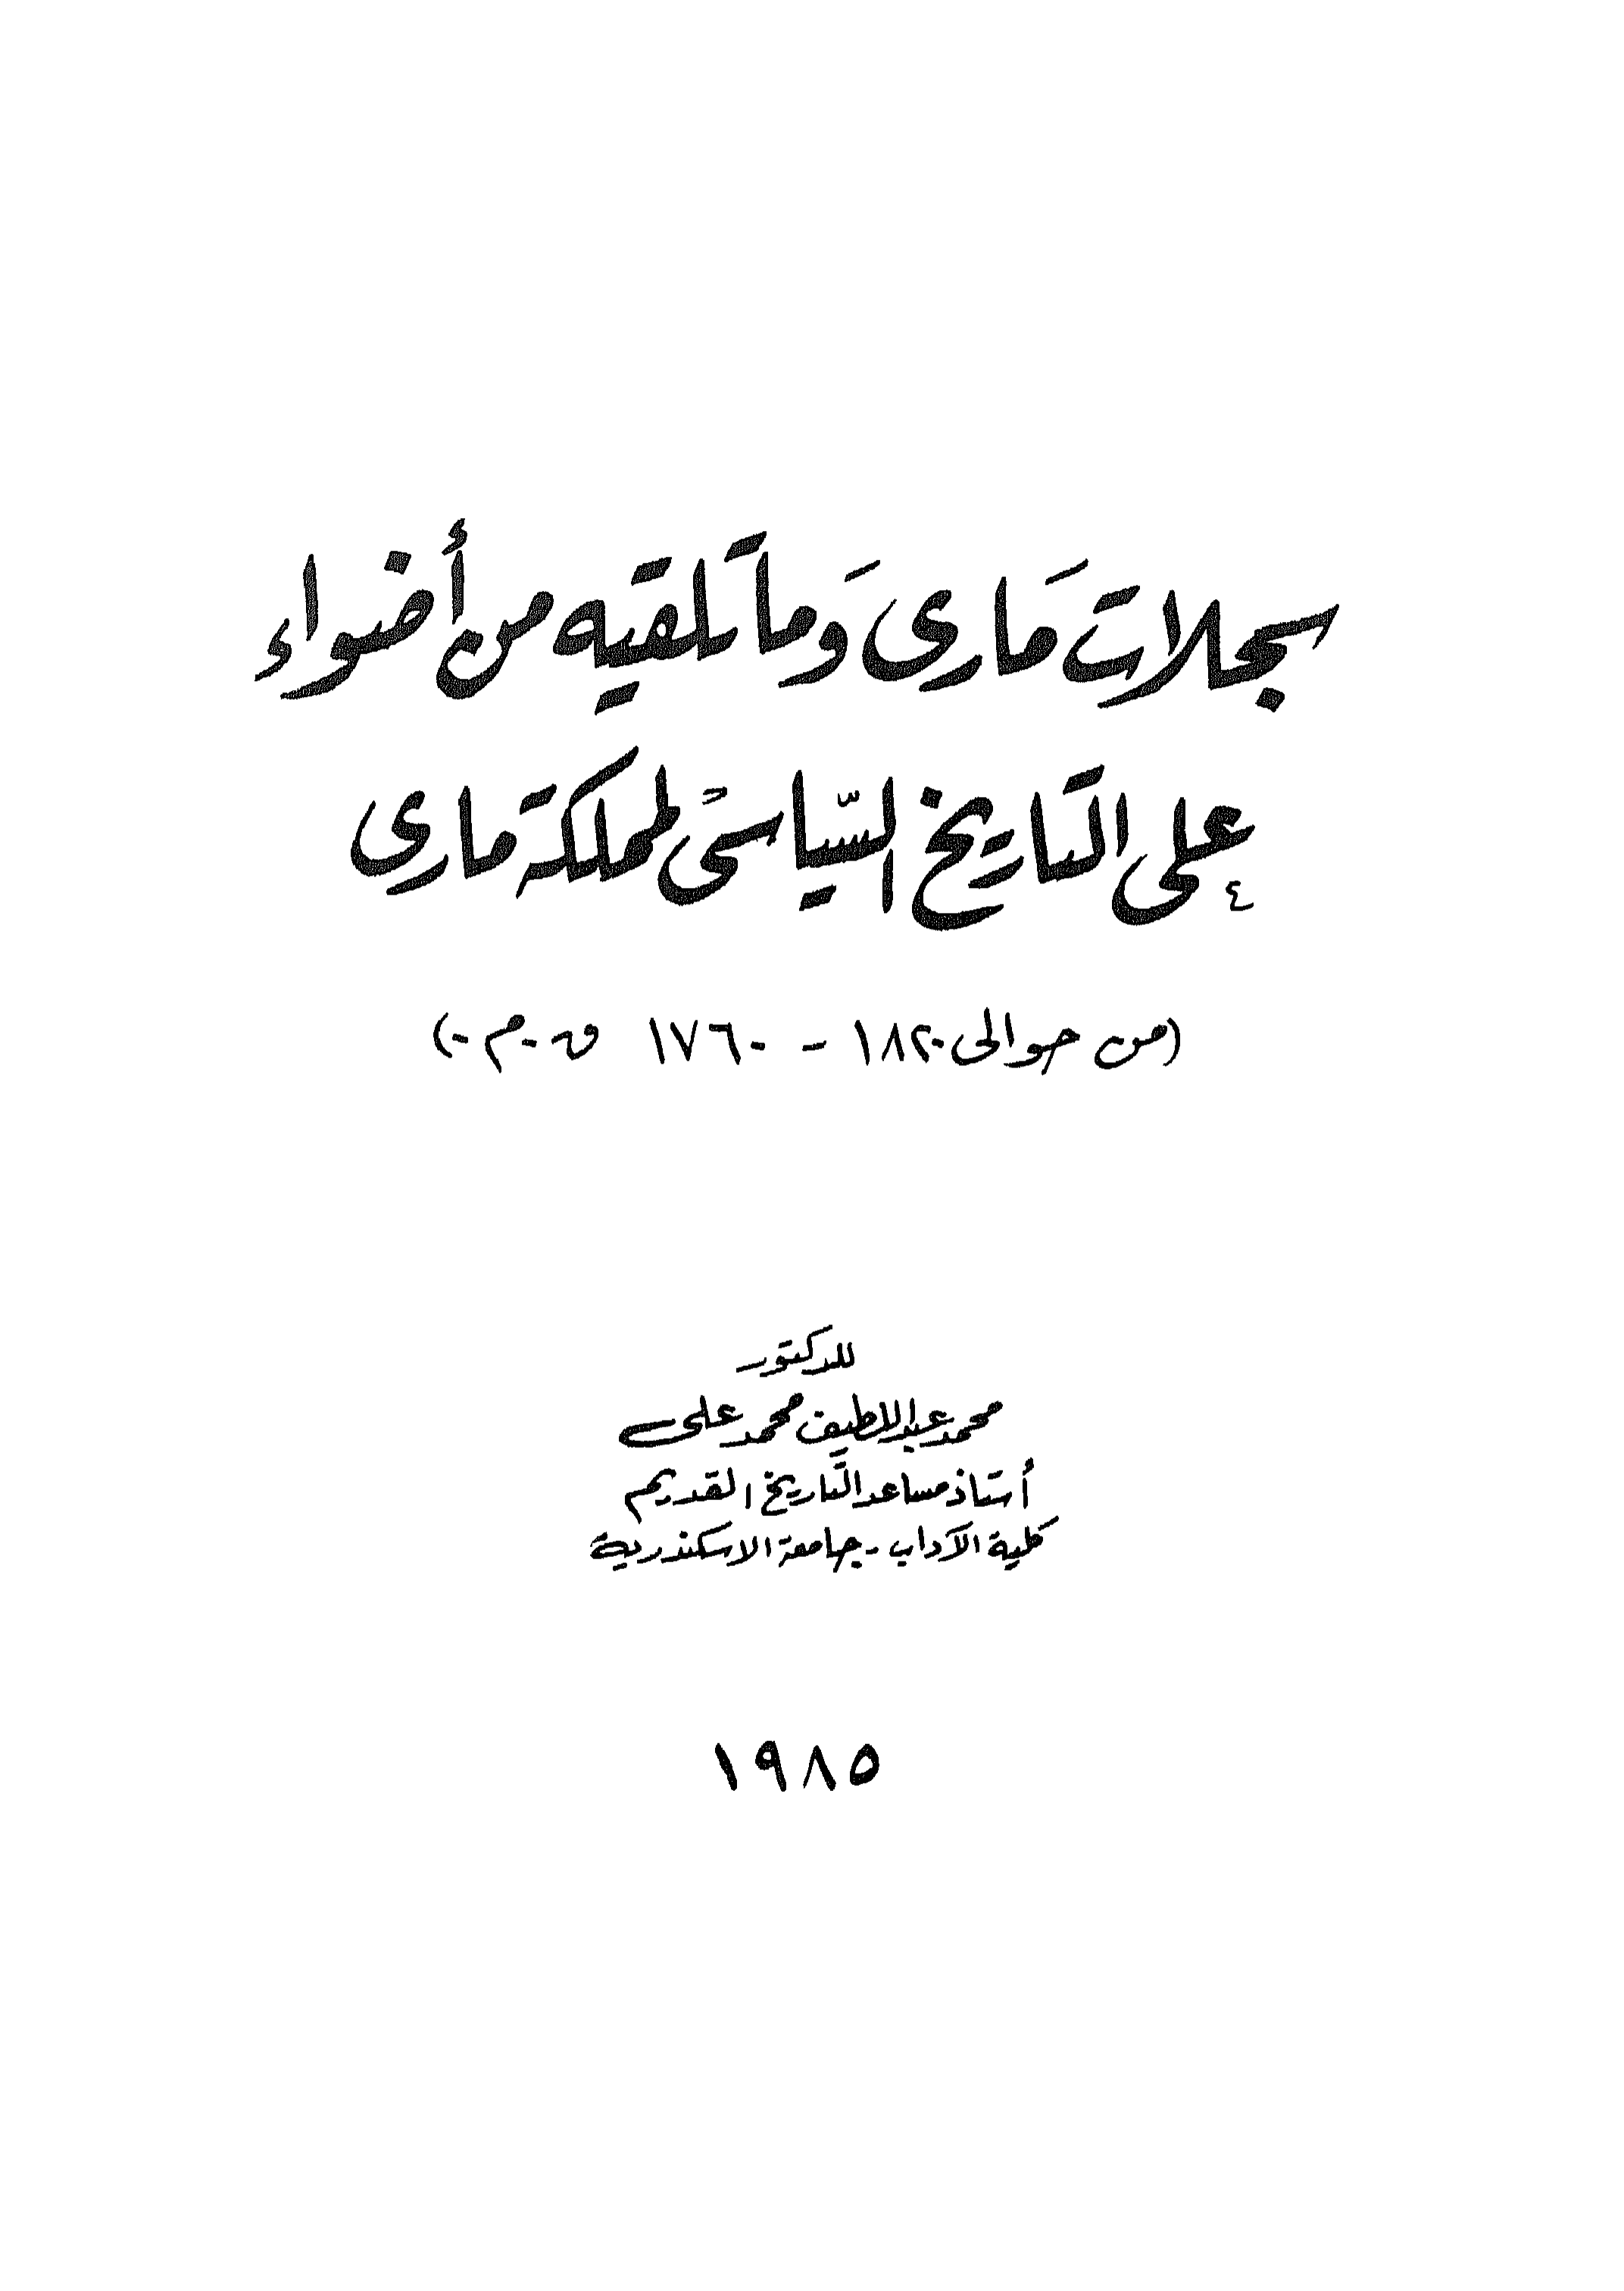 سجلات مَارى وَما تلقيه من أضواء
على التاريخ السّياسى لمملكة مارى
(من حوالى ١٨٢٠ - ١٧٦٠ ق.م.)
للدكتور
محمد عبد اللطيف محمد على
أستاذ مساعد التاريخ القديم
كلية الآداب - جامعة الاسكندرية
١٩٨٥